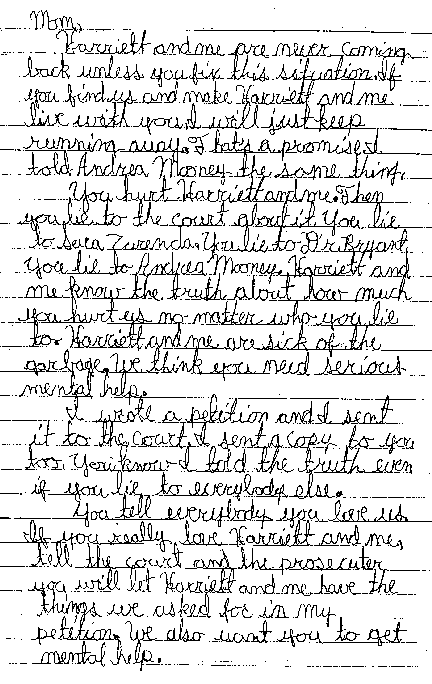 Mom,
Harriett and me are never coming
back unless you fix this situation. If
you find us and make Harriett and me
live with you I will just keep
running away. That's a promise. I
told Andrea Mooney the same thing.
You hurt Harriett and me. Then
you lie to the court about it. You lie
to Sara Zurenda. You lie to Dr Bryant.
You lie to Andrea Mooney. Harriett and
me know the truth about how much
you hurt us no matter who you lie
to. Harriett and me are sick of the
garbage. We think you need serious
mental help.
I wrote a petition and I sent
it to the court. I sent a copy to you
too. You know I told the truth even
if you lie to everybody else.
You tell everybody you love us.
If you really love Harriett and me,
tell the court and the prosecuter
you will let Harriett and me have the
things we asked for in my
petition. We also want you to get
mental help.